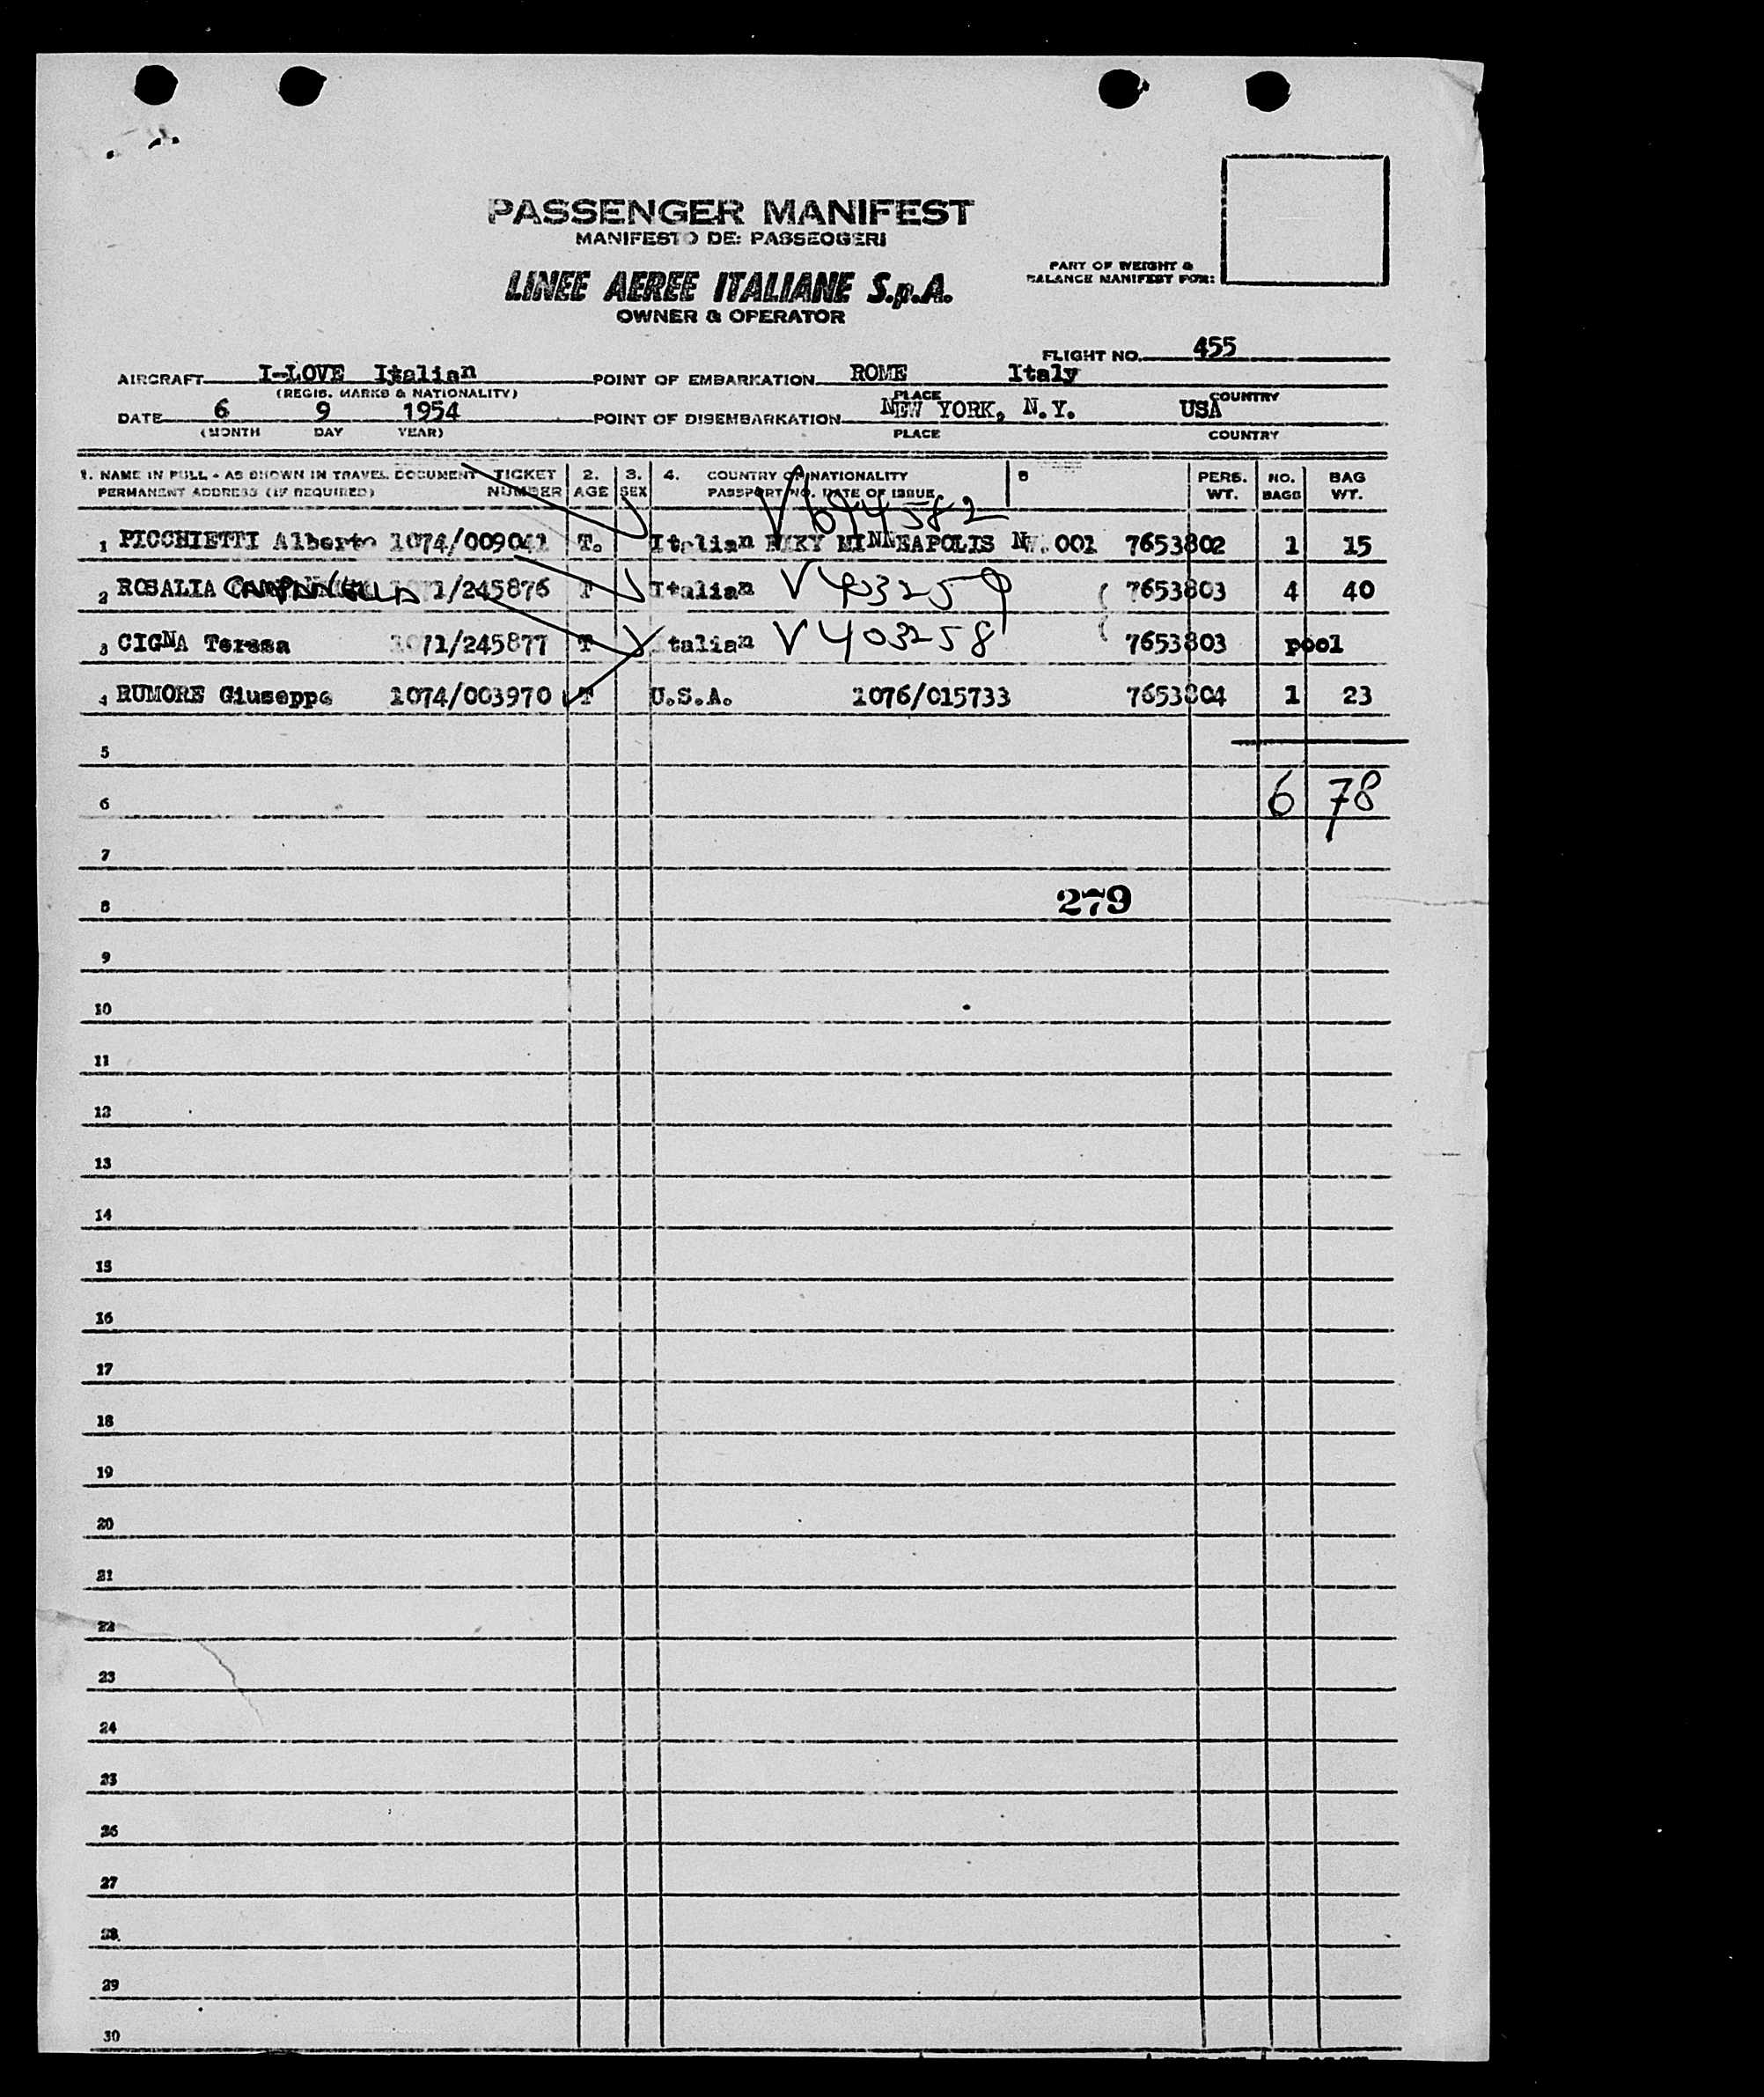 PASSENGER MANIFEST
MANIFESTO DE: PASSEOGERI
LINEE AEREE ITALIANE S.p.A.
OWNER & OPERATOR
PART OF WEIGHT &
BALANCE MANIFEST FOR:
FLIGHT NO. 455
AIRCRAFT I-LOVE Italian POINT OF EMBARKATION ROME Italy
(REGIS. MARKS & NATIONALITY) PLACE COUNTRY
DATE 6 9 1954 POINT OF DISEMBARKATION NEW YORK, N.Y. USA
(MONTH DAY YEAR) PLACE COUNTRY
1. NAME IN FULL - AS SHOWN IN TRAVEL DOCUMENT TICKET 2. 3. 4. COUNTRY OF NATIONALITY 5 PERS. NO. BAG
PERMANENT ADDRESS (IF REQUIRED) NUMBER AGE SEX PASSPORT NO. DATE OF ISSUE WT. BAGS WT.
V 644582
1 PICCHIETTI Alberto 1074/009041 T. Italian MINNEAPOLIS 001 7653802 1 15
2 ROSALIA 1/245876 T Italian V 403259 7653803 4 40
3 CIGNA Teresa 1071/245877 T Italian V 403258 7653803 pool
4 RUMORE Giuseppe 1074/003970 T U.S.A. 1076/015733 7653804 1 23
5
6 6 78
7
8 279
9
10
11
12
13
14
15
16
17
18
19
20
21
22
23
24
25
26
27
28
29
30